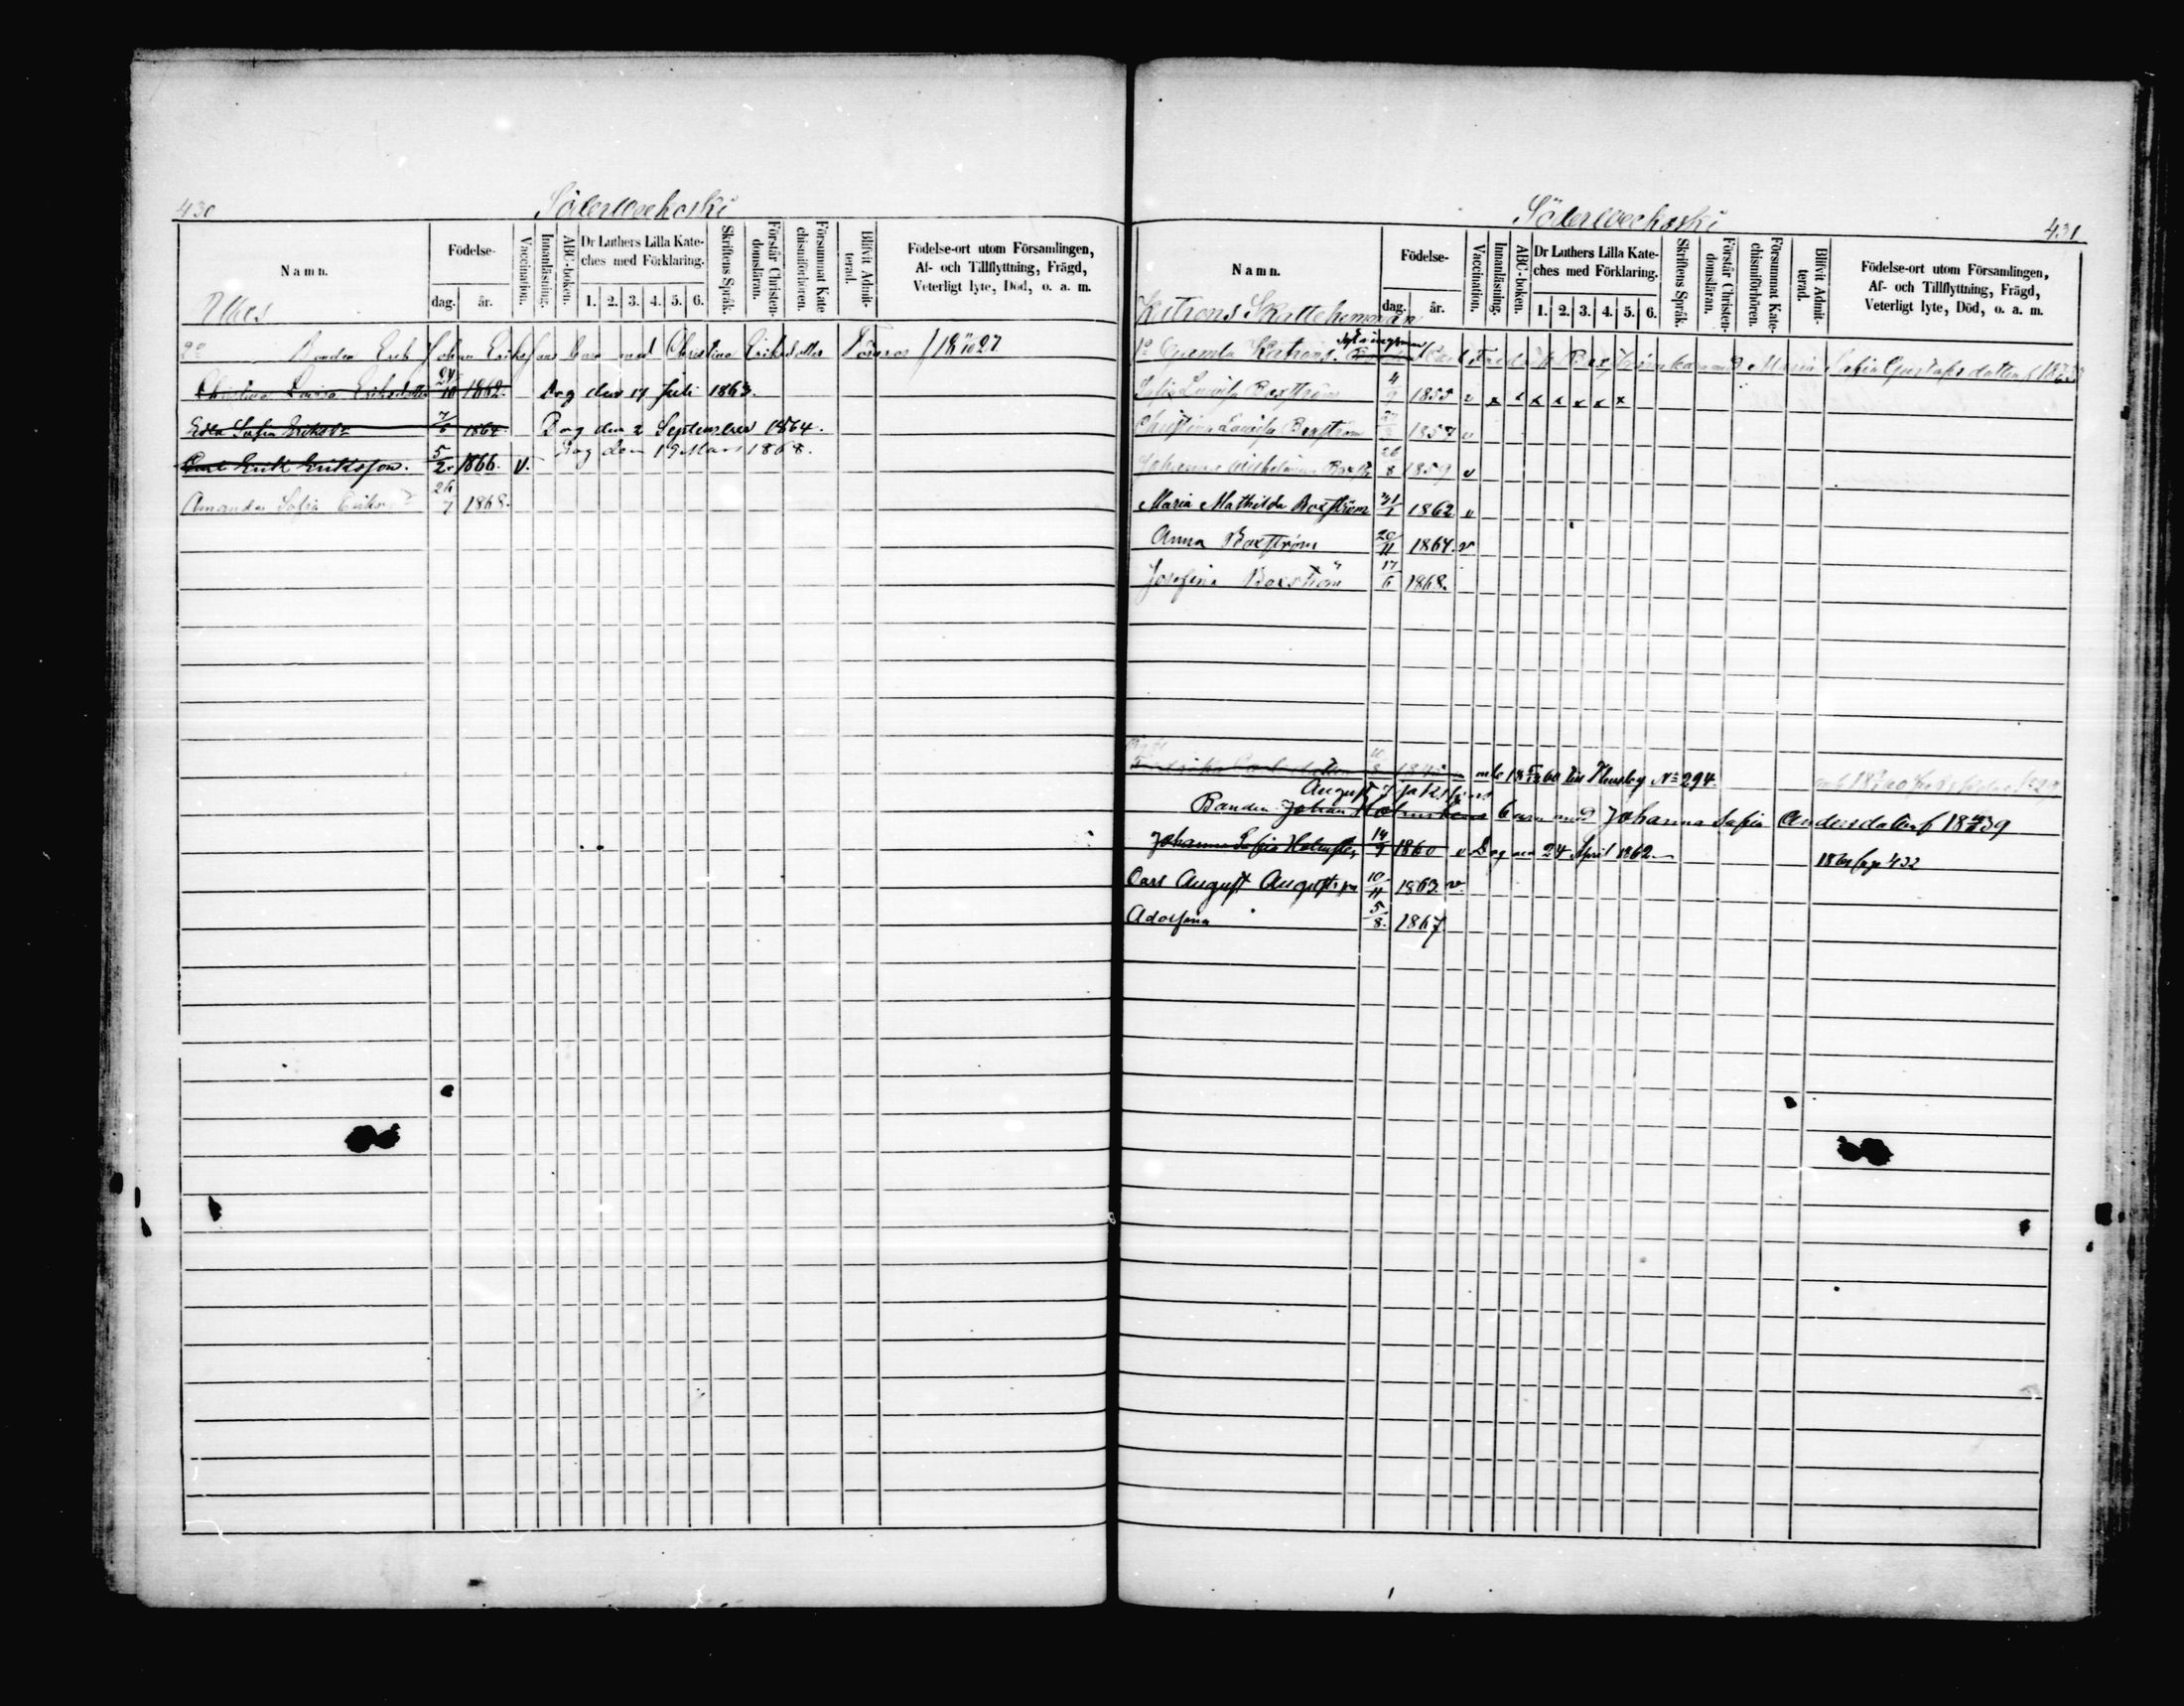 430
Söderwechoski
Namn.
Födelse-
dag.
år.
Vaccination.
Innanläsning.
ABC-boken.
Dr Luthers Lilla Kate-
ches med Förklaring.
1. 2. 3. 4. 5. 6.
Skriftens Språk.
Förstår Christen-
domsläran.
Försummat Kate
chismiförhören.
Blifvit Admit-
terad.
Födelse-ort utom Församlingen,
Af- och Tillflyttning, Frägd,
Veterligt lyte, Död, o. a. m.
2o Bonden Erik Johan Eriksson barn med Christina Eriksdotter
Christina Lovisa Eriksdotter 24/10 1862. Dog den 17 Juli 1863.
Edla Sofia Eriksdr 1864. Dog den 2 September 1864.
Carl Erik Eriksson. 5/2 1866. v. Dog den 19 Mars 1868.
Amanda Sofia Eriksdr 26/7 1868.
431
Söderwechoski
Namn.
Födelse-
dag.
år.
Vaccination.
Innanläsning.
ABC-boken.
Dr Luthers Lilla Kate-
ches med Förklaring.
1. 2. 3. 4. 5. 6.
Skriftens Språk.
Förstår Christen-
domsläran.
Försummat Kate-
chismiförhören.
Blifvit Admit-
terad.
Födelse-ort utom Församlingen,
Af- och Tillflyttning, Frägd,
Veterligt lyte, Död, o. a. m.
Katrons Skattehemman
1o Gamla Katrons. Carl Fredrik Boxström barn med Maria Sofia Gustafsdotter
Sofia Lovisa Boxström 4/9 1855 v x x x x x x x
Christina Lovisa Boxström 1857 v
Johanna Wilhelmina Boxstr 26/8 1859 v
Maria Mathilda Boxström 31/1 1862 v
Anna Boxström 20/11 1864. v
Josefina Boxström 17/6 1868.
till Thusby No 294.
August
Bonden Johan Holmsten barn med Johanna Sofia Andersdotter f 1839
Johanna Sofia Holmsten 14/9 1860 v Dog den 24 April 1862.
432
Carl August Augustsson 10/11 1863 v.
Adolfina 5/8. 1867